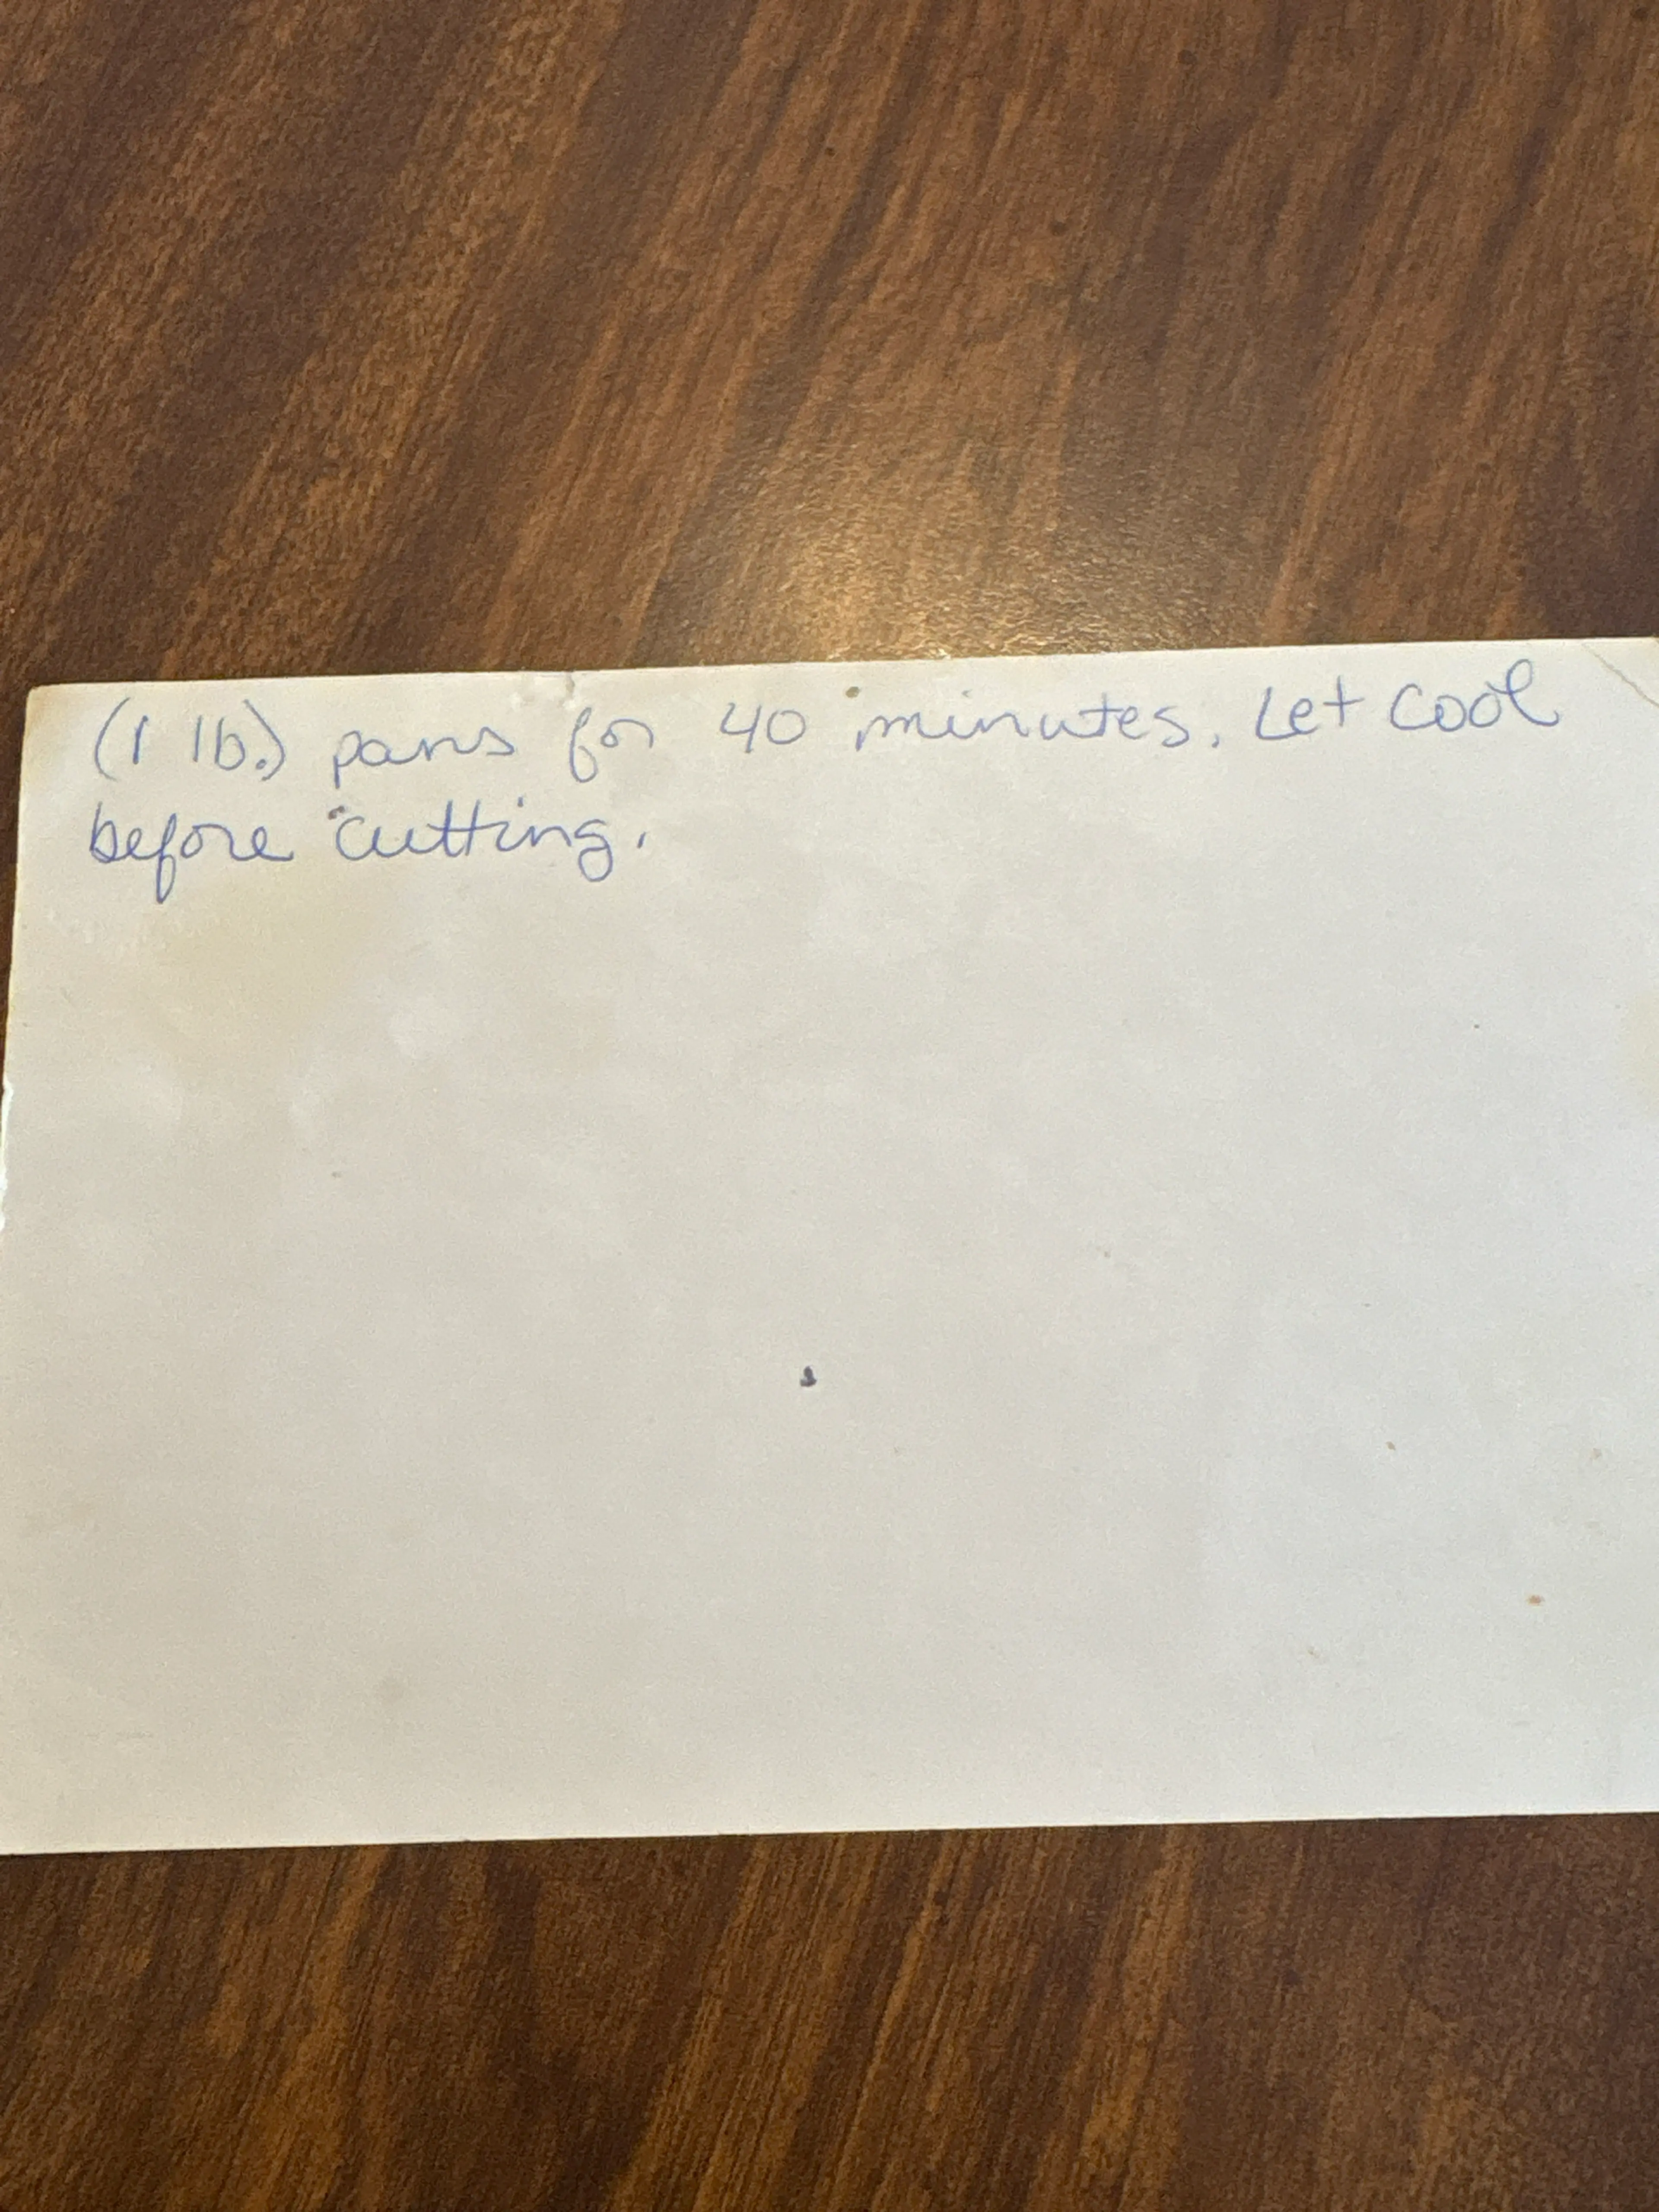 (1 lb.) pans for 40 minutes. Let cool
before cutting.